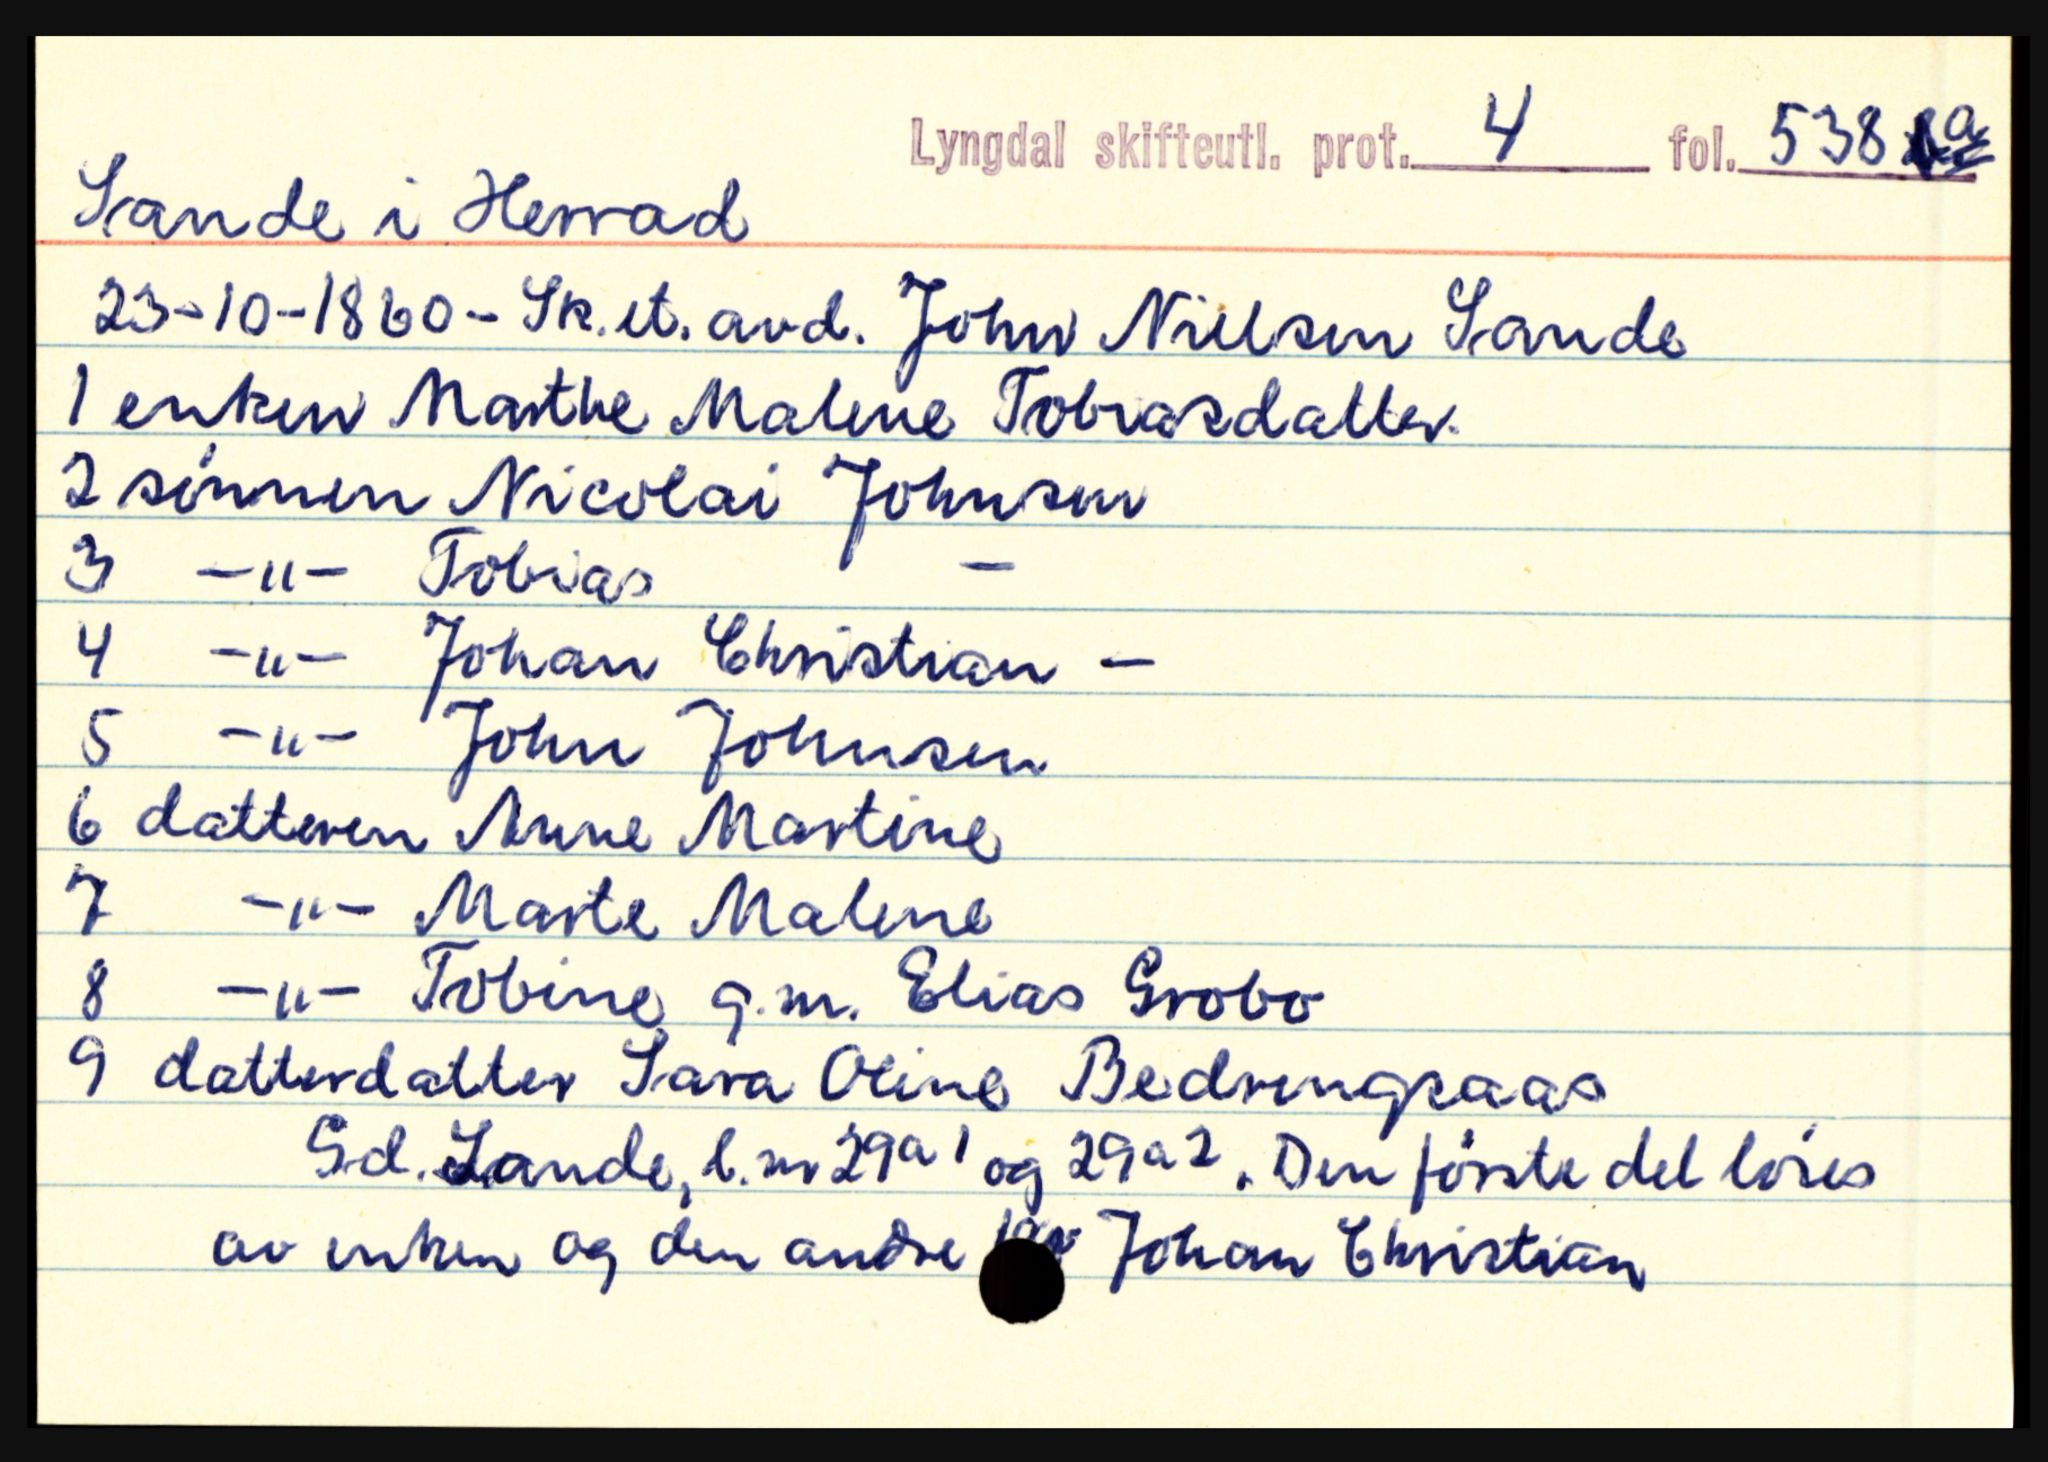 Lyngdal skifteutl. prot. 4 fol. 538 a
Sande i Herrad
23-10-1860 - Sk. et. avd. John Nillsen Sande
1 enken Marthe Malene Tobiasdatter.
2 sønnen Nicolai Johnsen
3 -"- Tobias -
4 -"- Johan Christian -
5 -"- John Johnsen
6 datteren Anne Martine
7 -"- Marte Malene
8 -"- Tobine g.m. Elias Grobo
9 datterdatter Sara Oline Bedringsaas
Gd. Sande, l.nr 29a1 og 29a2. Den første del løses
av enken og den andre av Johan Christian